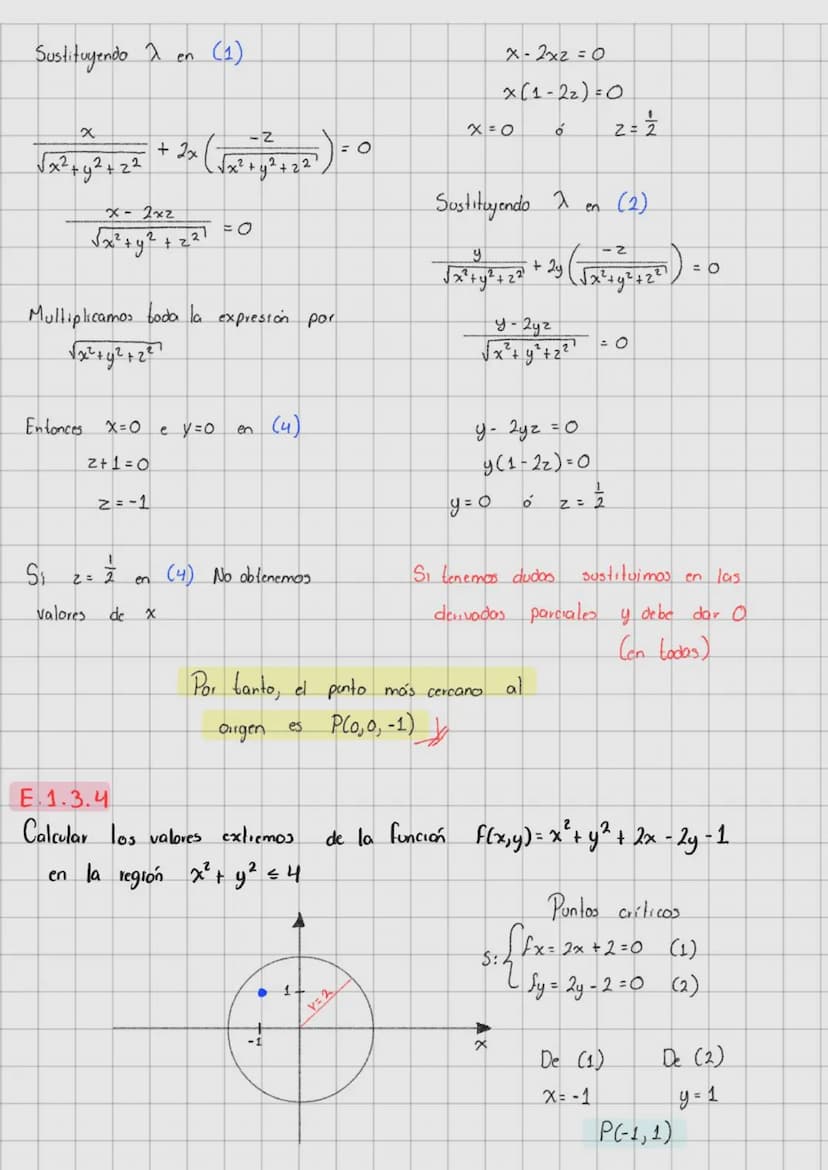 Sustituyendo λ en (1)
x/√(x²+y²+z²) + 2x(-z/√(x²+y²+z²)) = 0
(x - 2xz)/√(x²+y²+z²) = 0
Multiplicamos toda la expresión por
√(x²+y²+z²)
x - 2xz = 0
x(1-2z) = 0
x = 0 ó z = 1/2
Sustituyendo λ en (2)
y/√(x²+y²+z²) + 2y(-z/√(x²+y²+z²)) = 0
(y - 2yz)/√(x²+y²+z²) = 0
y - 2yz = 0
y(1-2z) = 0
y = 0 ó z = 1/2
Entonces x=0 e y=0 en (4)
z+1=0
z=-1
Si z = 1/2 en (4) No obtenemos
valores de x
Si tenemos dudas sustituimos en las
derivadas parciales y debe dar 0
(en todas)
Por tanto, el punto más cercano al
origen es P(0,0,-1)
E.1.3.4
Calcular los valores extremos de la función f(x,y) = x² + y² + 2x - 2y - 1
en la región x² + y² ≤ 4
1
r=2
-1
x
Puntos críticos
S: { fx = 2x + 2 = 0 (1)
fy = 2y - 2 = 0 (2)
De (1) De (2)
x = -1 y = 1
P(-1,1)